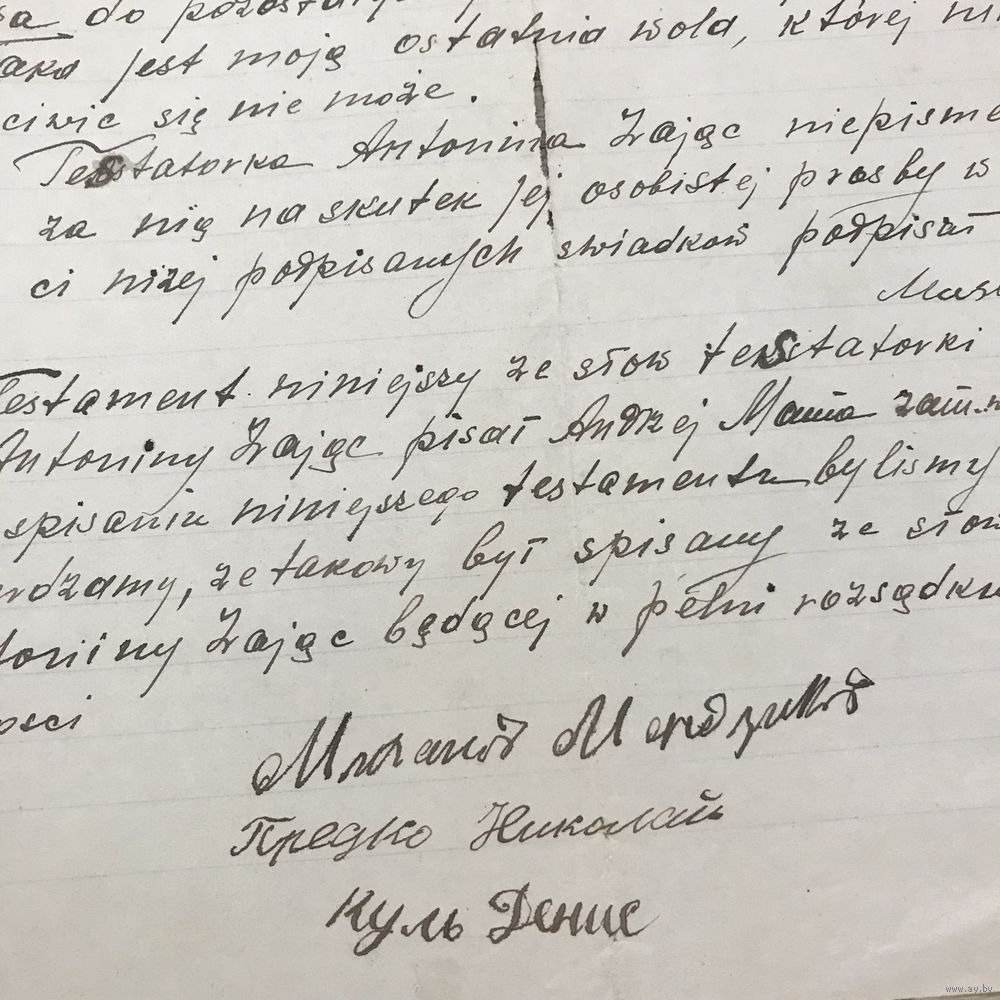 sa do pozosta
aka jest moją ostatnia wola, której ni
ciwić się nie może.
Testatorka Antonina Zając niepisme
za nią na skutek jej osobistej prosby w
ci niżej podpisanych swiadków podpisał
Testament niniejszy ze słow testatorki
Antoniny Zając pisał Andrzej zam.
spisaniu niniejszego testamentu bylismy
erdzamy, ze takowy był spisany ze słow
toniny Zając będącej w pełni rozsądku
osci
Предко Николай
Куль Денис
www.ay.by